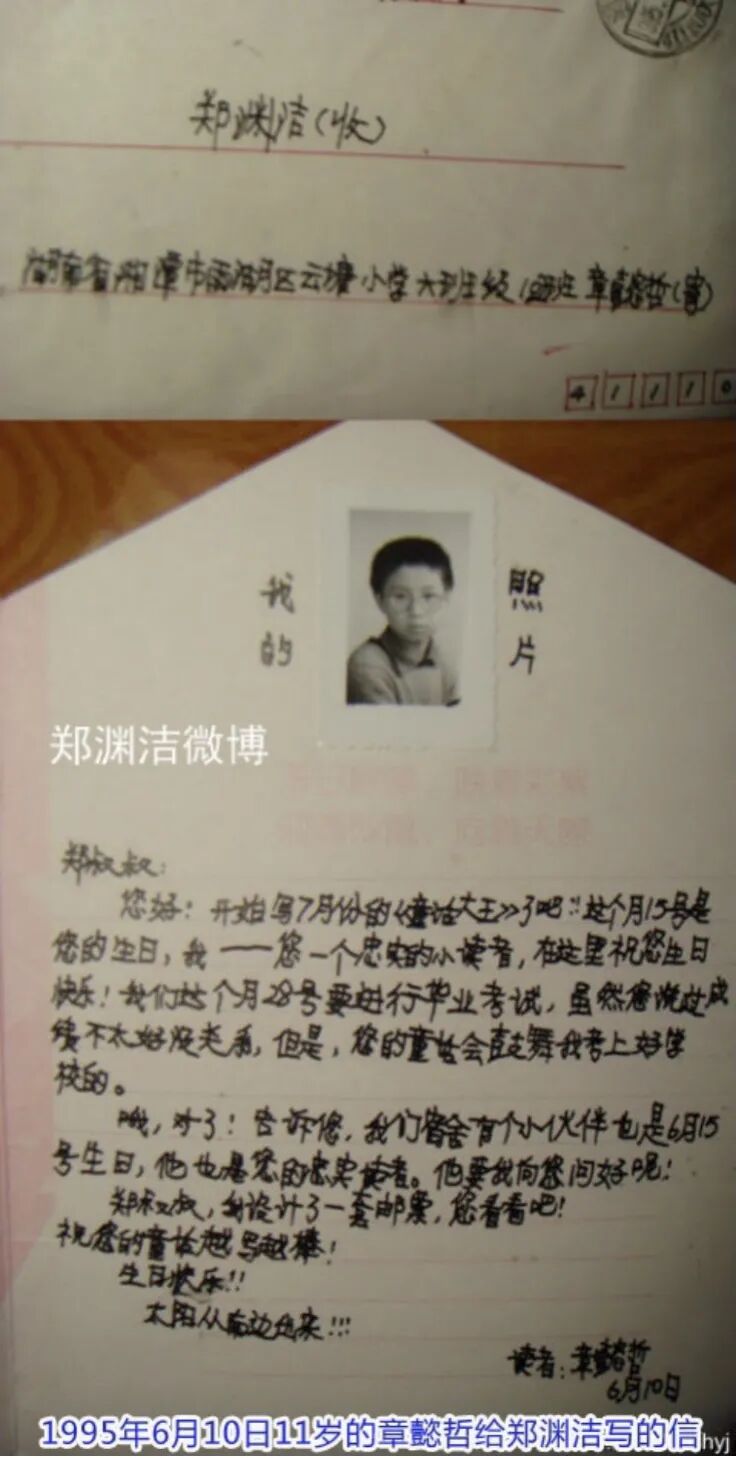 郑渊洁(收)
湖南省湘潭市雨湖区云塘小学六班年级 班 章懿哲(寄)
4 1 1 1 0
我 照
的 片
郑渊洁微博
郑叔叔:
您好!开始写7月份的《童话大王》了吧!!这个月15号是
您的生日,我——您一个忠实的小读者,在这里祝您生日
快乐!我们这个月28号要进行毕业考试,虽然您说过成
绩不太好没关系,但是,您的童话会鼓舞我考上好学
校的。
哦,对了!告诉您,我们宿舍有个小伙伴也是6月15
号生日,他也是您的忠实读者。他要我向您问好呢!
郑叔叔,我设计了一套邮票,您看看吧!
祝您的童话越写越棒!
生日快乐!!
太阳从 边出来!!!
读者:章懿哲
6月10日
1995年6月10日11岁的章懿哲给郑渊洁写的信
hyj